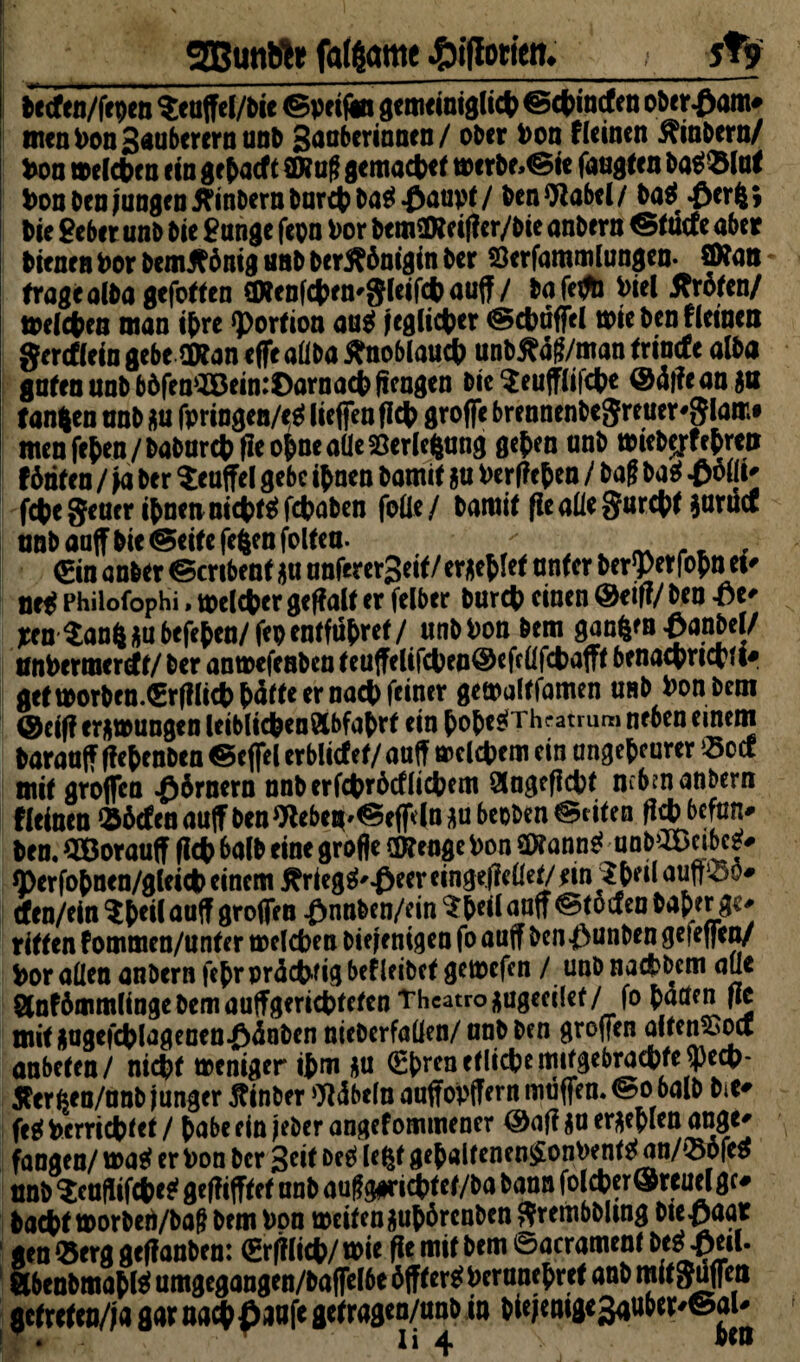 Wunder seltzame Historien. 519
decken/seyen Teuffel/die Speisen gemeiniglich Schincken oder Ham-
men von Zauberern und Zauberinnen / oder von kleinen Kindern/
von welchen ein gehackt Muß gemachet werde. Sie saugten das Blut
von den jungen Kindern durch das Haupt / den Nabel / das Hertz;
die Leber und die Lunge seyn vor dem Meister/die andern Stücke aber
dienen vor dem König und der Königin der Versammlungen. Man
trage alda gesotten Menschen-Fleisch auff / da seyn viel Kröten/
welchen man ihre Portion aus jeglicher Schüssel wie den kleinen
Fercklein gebe. Man esse allda Knoblauch und Käß/man trincke alda
guten und bösen Wein: Darnach fiengen die Teufflische Gäste an zu
tantzen und zu springen/es liessen sich grosse brennende Freuer-Flam-
men sehen / dadurch sie ohne alle Verletzung gehen und wiederkehren
könten / ja der Teuffel gebe ihnen damit zu verstehen / daß das Hölli-
sche Feuer ihnen nichts schaden solle / damit sie alle Furcht zurück
und auff die Seite setzen solten.
Ein ander Scribent zu unserer Zeit/erzehlet unter der Persohn ei-
nes Philosophi, welcher gestalt er selber durch einen Geist/ den He-
xen-Tantz zu besehen/ sey entführet / und von dem gantzen Handel/
unvermerckt/ der anwesenden teuffelischen Gesellschafft benachrichti-
get worden. Erstlich hätte er nach seiner gewaltsamen und von dem
Geist erzwungen leiblichen Abfahrt ein hohes Theatrum neben einem
darauff stehenden Sessel erblicket/ auff welchem ein ungeheurer Bock
mit grossen Hörnern und erschröcklichem Angesicht neben andern
kleinen Böcken auff den Neben-Sesseln zu beyden Seiten sich befun-
den. Worauff sich bald eine grosse Menge von Manns und Weibes-
Persohnen/gleich einem Kriegs-Heer eingestellet/ ein Theil auff Bö-
cken/ein Theil auff grossen Hunden/ein Theil auff Stöcken daher ge-
ritten kommen/unter welchen diejenigen so auff den Hunden gesessen/
vor allen andern sehr prächtig bekleidet gewesen / und nachdem alle
Ankömmlinge dem auffgerichteten Theatro zugeeilet / so hätten sie
mit zugeschlagenen Händen niederfallen/ und den grossen alten Bock
anbeten / nicht weniger ihm zu Ehren etliche mitgebrachte Pech-
Kertzen/und junger Kinder Näbeln auffopffern müssen. So bald die-
ses verrichtet / habe ein jeder angekommener Gast zu erzehlen ange-
fangen/ was er von der Zeit des letzt gehaltenen Convents an/Böses
und Teuflisches gestifftet und außgerichtet/da dann solcher Greuel ge-
dacht worden/daß dem von weiten zuhörenden Frembdling die Haar
gen Berg gestanden: Erstlich/ wie sie mit dem Sacrament des Heil.
Abendmahls umgegangen/dasselbe öffters verunehret und mit Füssen
getreten/ja gar nach Hause getragen/und in diejenige Zauber-Sal-
Ii 4 ben